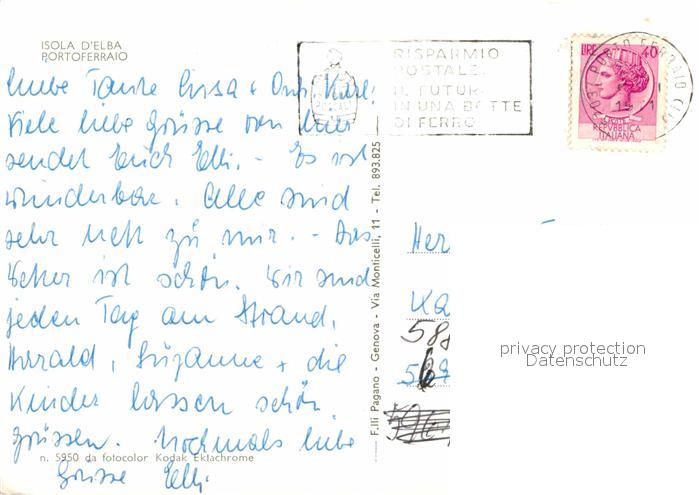 ISOLA D'ELBA
PORTOFERRAIO
RISPARMIO
POSTALE:
IL FUTURO
IN UNA BOTTE
DI FERRO
LIRE 40
REPVBBLICA
ITALIANA
Liebe Tante Luisa + Onk. Karl!
Viele liebe Grüsse von hier
sendet Euch Elli. - Es ist
wunderbar. Alle sind
sehr nett zu mir. - Das
Wetter ist schön. Wir sind
jeden Tag am Strand.
Harald, Suzanne + die
Kinder lassen schön
grüssen. Nochmals liebe
Grüsse Elli.
n. 5950 da fotocolor Kodak Ektachrome
F.lli Pagano - Genova - Via Monticelli, 11 - Tel. 893.825
Her
Ka
58
privacy protection
Datenschutz